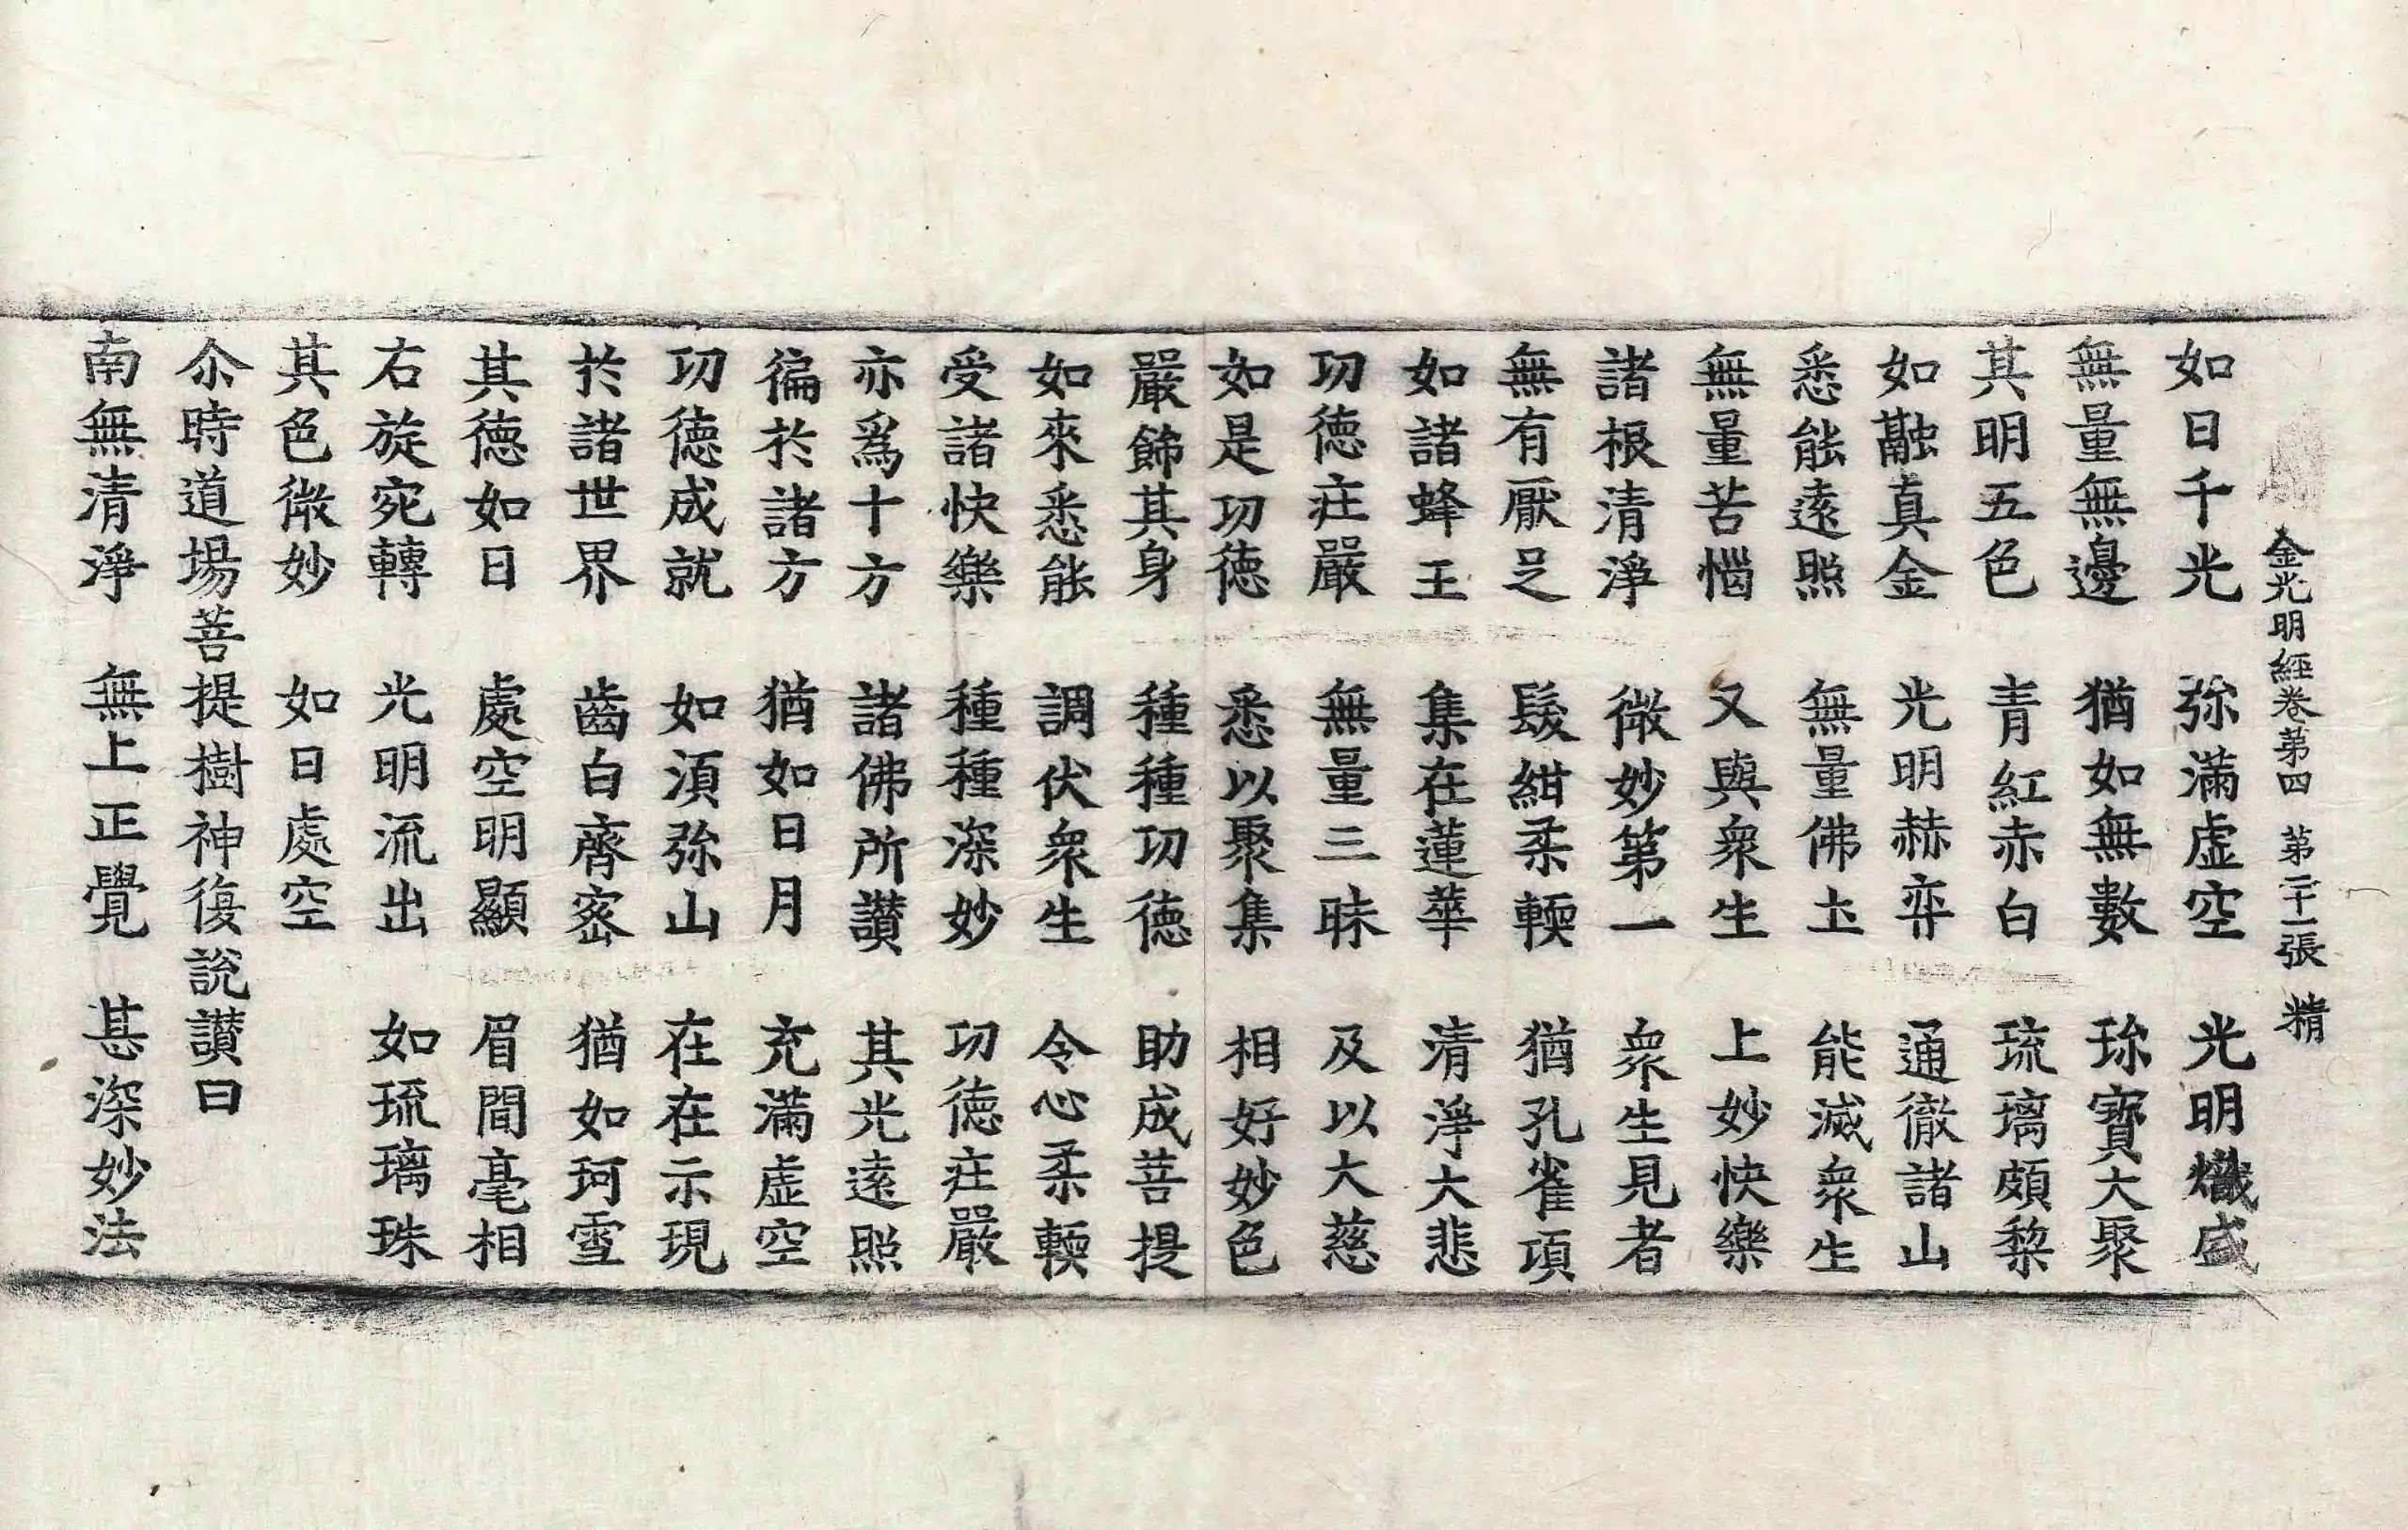 金光明經卷第四 第二十一張 精
如日千光 弥滿虛空 光明熾盛
無量無邊 猶如無數 珎寶大聚
其明五色 青紅赤白 琉璃頗梨
如融真金 光明赫弈 通徹諸山
悉能遠照 無量佛土 能滅衆生
無量苦惱 又與衆生 上妙快樂
諸根清淨 微妙第一 衆生見者
無有厭足 髮紺柔軟 猶孔雀項
如諸蜂王 集在蓮華 清淨大悲
功德庄嚴 無量三昧 及以大慈
如是功德 悉以聚集 相好妙色
嚴飾其身 種種功德 助成菩提
如來悉能 調伏衆生 令心柔軟
受諸快樂 種種深妙 功德庄嚴
亦爲十方 諸佛所讃 其光遠照
徧於諸方 猶如日月 充滿虛空
功德成就 如湏弥山 在在示現
於諸世界 齒白齊宻 猶如珂雪
其德如日 處空明顯 眉間毫相
右旋宛轉 光明流出 如琉璃珠
其色微妙 如日處空
尒時道場菩提樹神復說讃曰
南無清淨 無上正覺 甚深妙法